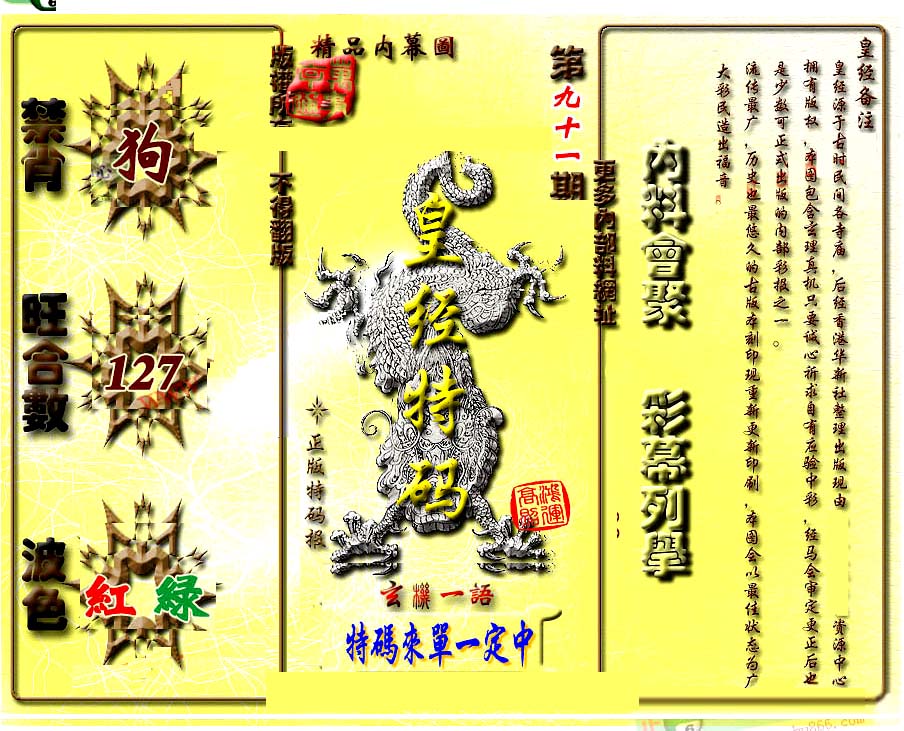 皇经备注
皇经源于古时民间各寺庙，后经香港华新社整理出版现由 资源中心
拥有版权，本图包含玄理真机只要诚心祈求自有应验中彩，经马会审定更正后也
是少数可正式出版的内部彩报之一。
流传最广，历史也最悠久的古版本刻印现重新更新印刷，本图会以最佳状态为广
大彩民造出福音
内料會聚
彩幕列舉
更多内部料網址
第九十一期
精品内幕圖
版權所
不得翻版
皇经特码
正版特码报
鴻運
玄機一語
特碼來單一定中
禁肖
狗
旺合數
127
波色
紅 綠